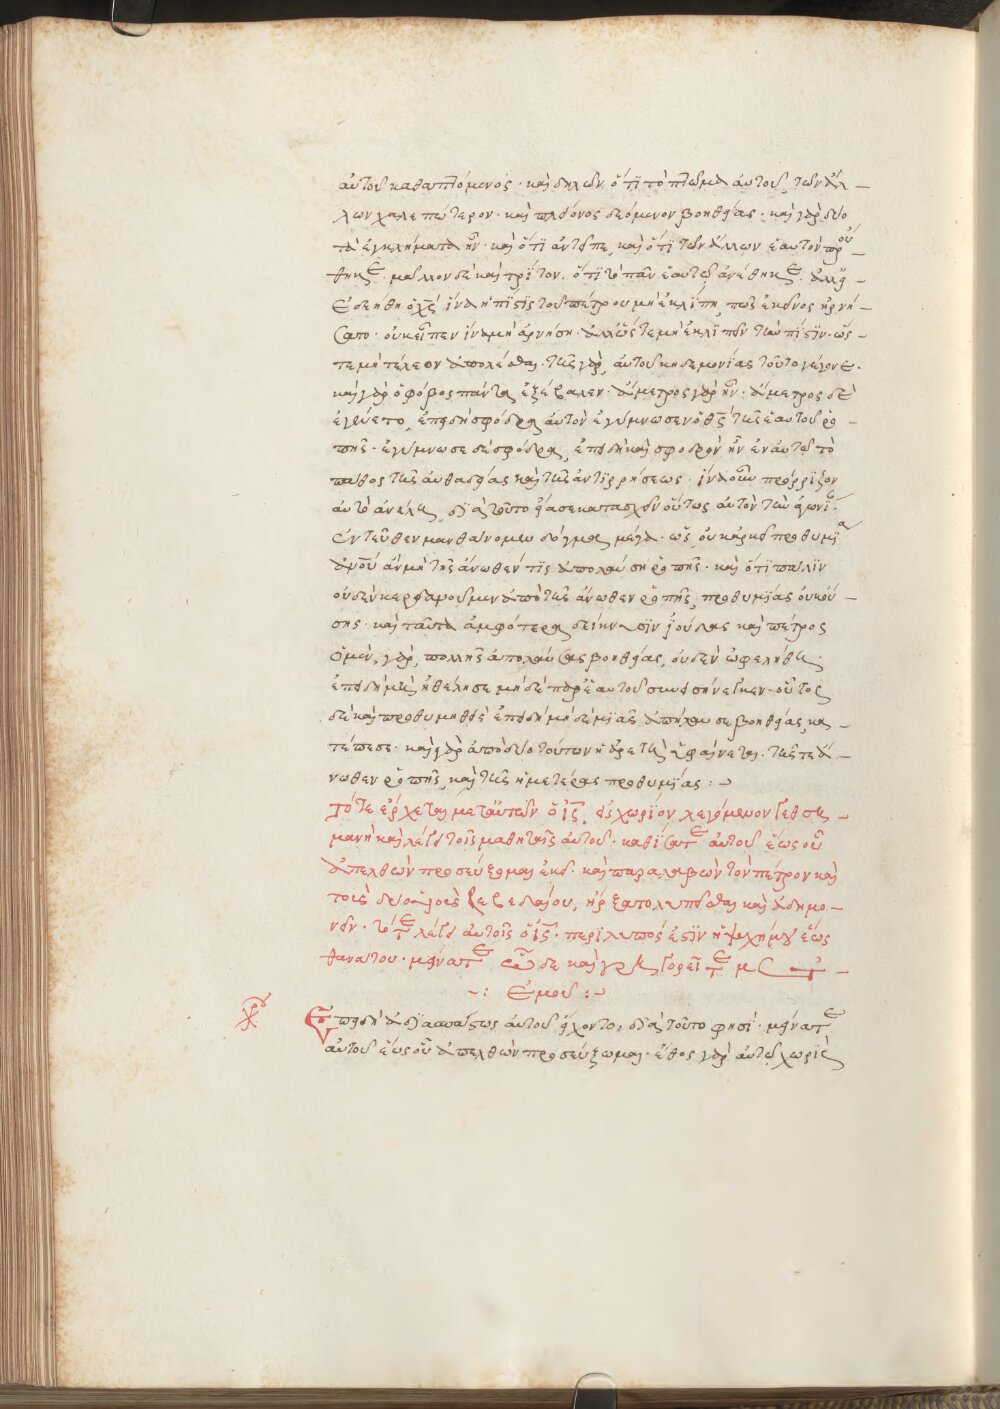 αὐτοῦ καθαπτόμενος· καὶ δηλῶν ὅτι τὸ πτῶμα αὐτοῦ, τῶν ἄλ-
λων χαλεπώτερον· καὶ πλείονος δεόμενον βοηθείας· καὶ γὰρ δύο
τὰ ἐγκλήματα ἦν· καὶ ὅτι ἀντεῖπε, καὶ ὅτι τῶν ἄλλων ἑαυτὸν προὔ-
θηκε· μᾶλλον δὲ καὶ τρίτον. ὅτι τὸ πᾶν ἑαυτῷ ἀνέθηκε. ἀλλ'
ἐδεήθη ὁ χς ἵνα ἡ πίστις τοῦ πέτρου μὴ ἐκλίπη, πῶς ἐκεῖνος ἠρνή-
σατο· οὐκ εἶπεν ἵνα μὴ ἀρνήση· ἀλλ' ὥστε μὴ ἐκλιπεῖν τὴν πίστιν· ὥσ-
τε μὴ τέλεον ἀπολέσθαι· τῆς γὰρ, αὐτοῦ κηδεμονίας τοῦτο γέγονε.
καὶ γὰρ ὁ φόβος πάντα ἐξέβαλεν· ἄμετρος γὰρ ἦν· ἄμετρος δὲ
ἐγένετο, ἐπειδὴ σφόδρα αὐτὸν ἐγύμνωσεν ὁ θς τῆς ἑαυτοῦ ῥο-
πῆς· ἐγύμνωσε δὲ σφόδρα, ἐπειδὴ καὶ σφοδρὸν ἦν ἐν αὐτῷ τὸ
πάθος τῆς αὐθαδείας καὶ τῆς ἀντιρρήσεως· ἵνα οὖν πρόρριζον
αὐτὸ ἀνέλη, διὰ τοῦτο εἴασε καταπασχεῖν οὕτως αὐτὸν τὴν ἀγωνί.
ἐντεῦθεν μανθάνομεν δόγμα μέγα· ὡς οὐκ ἀρκεῖ προθυμία
ἀνοῦ ἂν μὴ τῆς ἄνωθέν τις ἀπολαύση ῥοπῆς· καὶ ὅτι πάλιν
οὐδὲν κερδανοῦμεν ἀπὸ τῆς ἄνωθεν ῥοπῆς, προθυμίας οὐκ οὔ-
σης· καὶ ταῦτα ἀμφότερα δείκνυσιν ἰούδας καὶ πέτρος
ὁ μὲν, γὰρ, πολλῆς ἀπολαύσας βοηθείας, οὐδὲν ὠφελήθη·
ἐπειδὴ μὴ ἠθέλησε μηδὲ παρ' ἑαυτοῦ συνεισήνεγκεν· οὗτος
δὲ καὶ προθυμηθεὶς ἐπειδὴ μηδεμιᾶς ἀπήλαυσε βοηθείας, κα-
τέπεσε· καὶ γὰρ ἀπὸ δύο τούτων ἡ ἀρετὴ ὑφαίνεται. τῆς τε ἄ-
νωθεν ῥοπῆς, καὶ τῆς ἡμετέρας προθυμίας :~
Τότε ἔρχεται μετ' αὐτῶν ὁ ἰς, εἰς χωρίον λεγόμενον γεθση-
μανὴ καὶ λέγει τοῖς μαθηταῖς αὐτοῦ· καθίσατε αὐτοῦ ἕως οὗ
ἀπελθὼν προσεύξωμαι ἐκεῖ· καὶ παραλαβὼν τὸν πέτρον καὶ
τοὺς δύο υἱοὺς ζεβεδαίου, ἤρξατο λυπεῖσθαι καὶ ἀδημο-
νεῖν· τότε λέγει αὐτοῖς ὁ ἰς· περίλυπός ἐστιν ἡ ψυχή μου ἕως
θανάτου· μείνατε ὧδε καὶ γρηγορεῖτε μετ'
~: Ἐμοῦ :~
Ἐπειδὴ ἀδιασπάστως αὐτοῦ εἴχοντο, διὰ τοῦτο φησί· μείνατε
αὐτοῦ ἕως οὗ ἀπελθὼν προσεύξωμαι· ἔθος γὰρ αὐτῷ χωρὶς